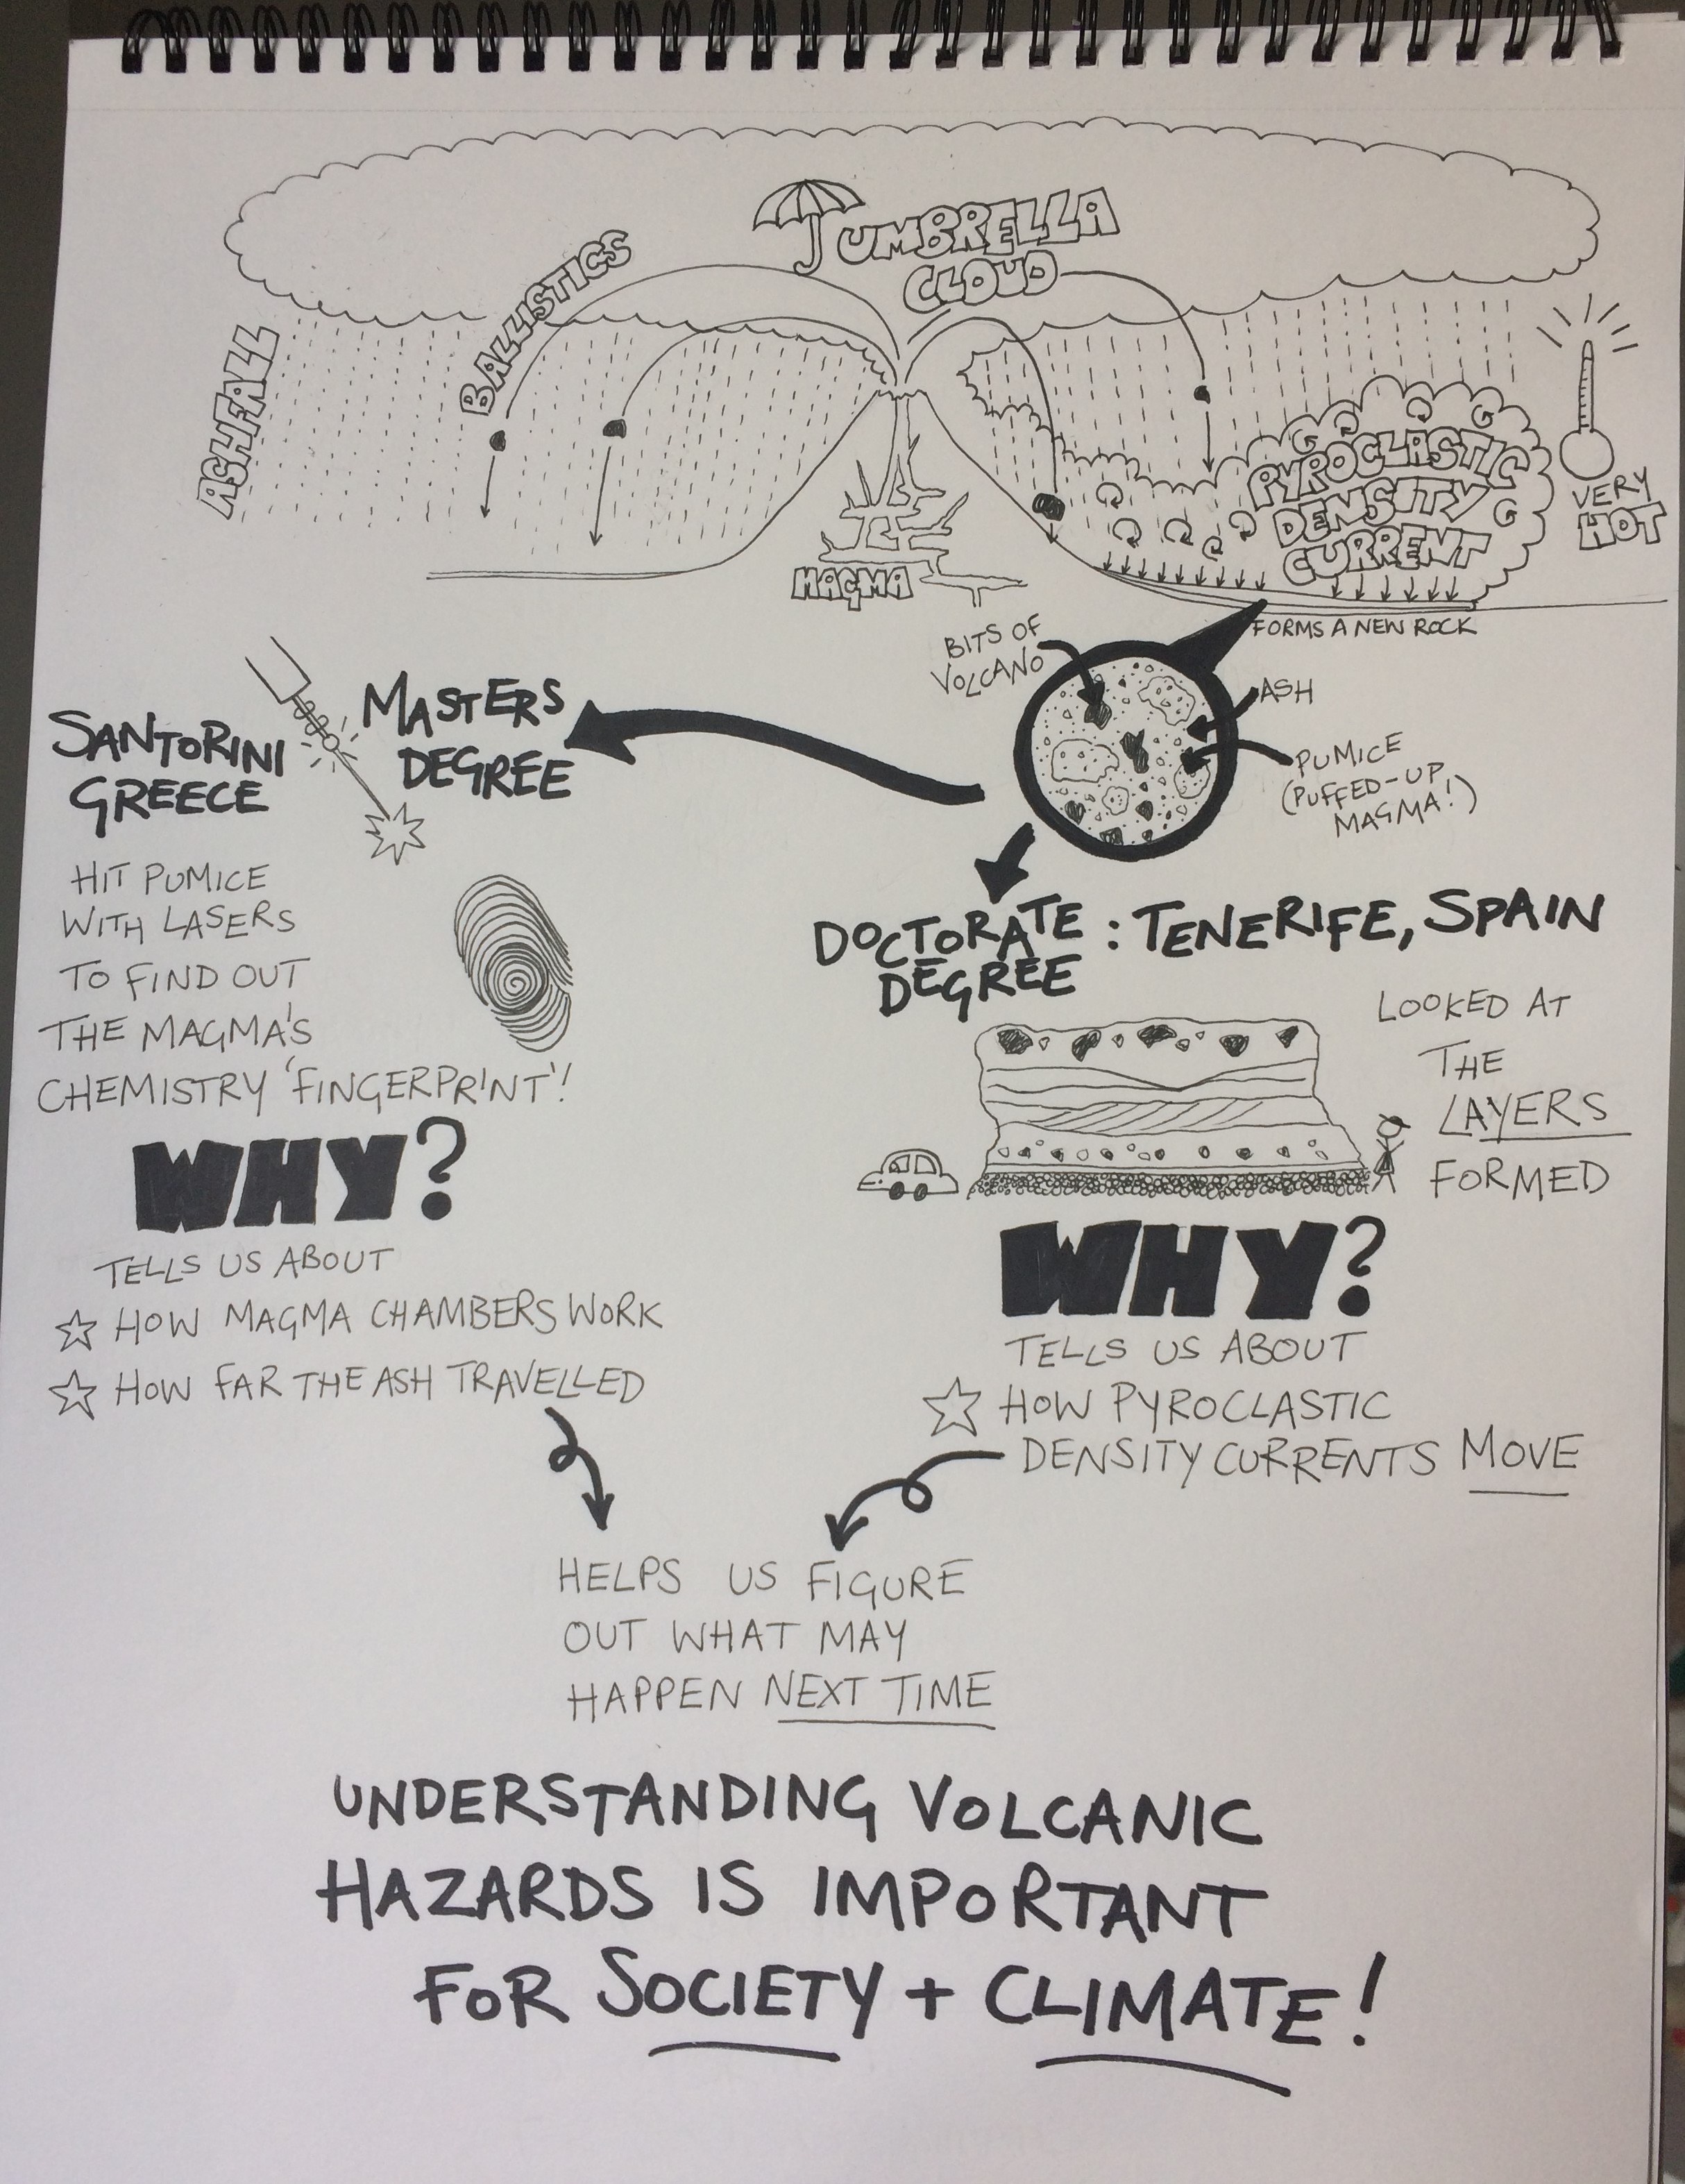 UMBRELLA
CLOUD
BALLISTICS
ASHFALL
PYROCLASTIC
DENSITY
CURRENT
VERY
HOT
MAGMA
FORMS A NEW ROCK
BITS OF
VOLCANO
ASH
PUMICE
(PUFFED-UP
MAGMA!)
MASTERS
DEGREE
SANTORINI
GREECE
HIT PUMICE
WITH LASERS
TO FIND OUT
THE MAGMA'S
CHEMISTRY 'FINGERPRINT'!
WHY?
TELLS US ABOUT
☆ HOW MAGMA CHAMBERS WORK
☆ HOW FAR THE ASH TRAVELLED
DOCTORATE : TENERIFE, SPAIN
DEGREE
LOOKED AT
THE
LAYERS
FORMED
WHY?
TELLS US ABOUT
☆ HOW PYROCLASTIC
DENSITY CURRENTS MOVE
HELPS US FIGURE
OUT WHAT MAY
HAPPEN NEXT TIME
UNDERSTANDING VOLCANIC
HAZARDS IS IMPORTANT
FOR SOCIETY + CLIMATE!